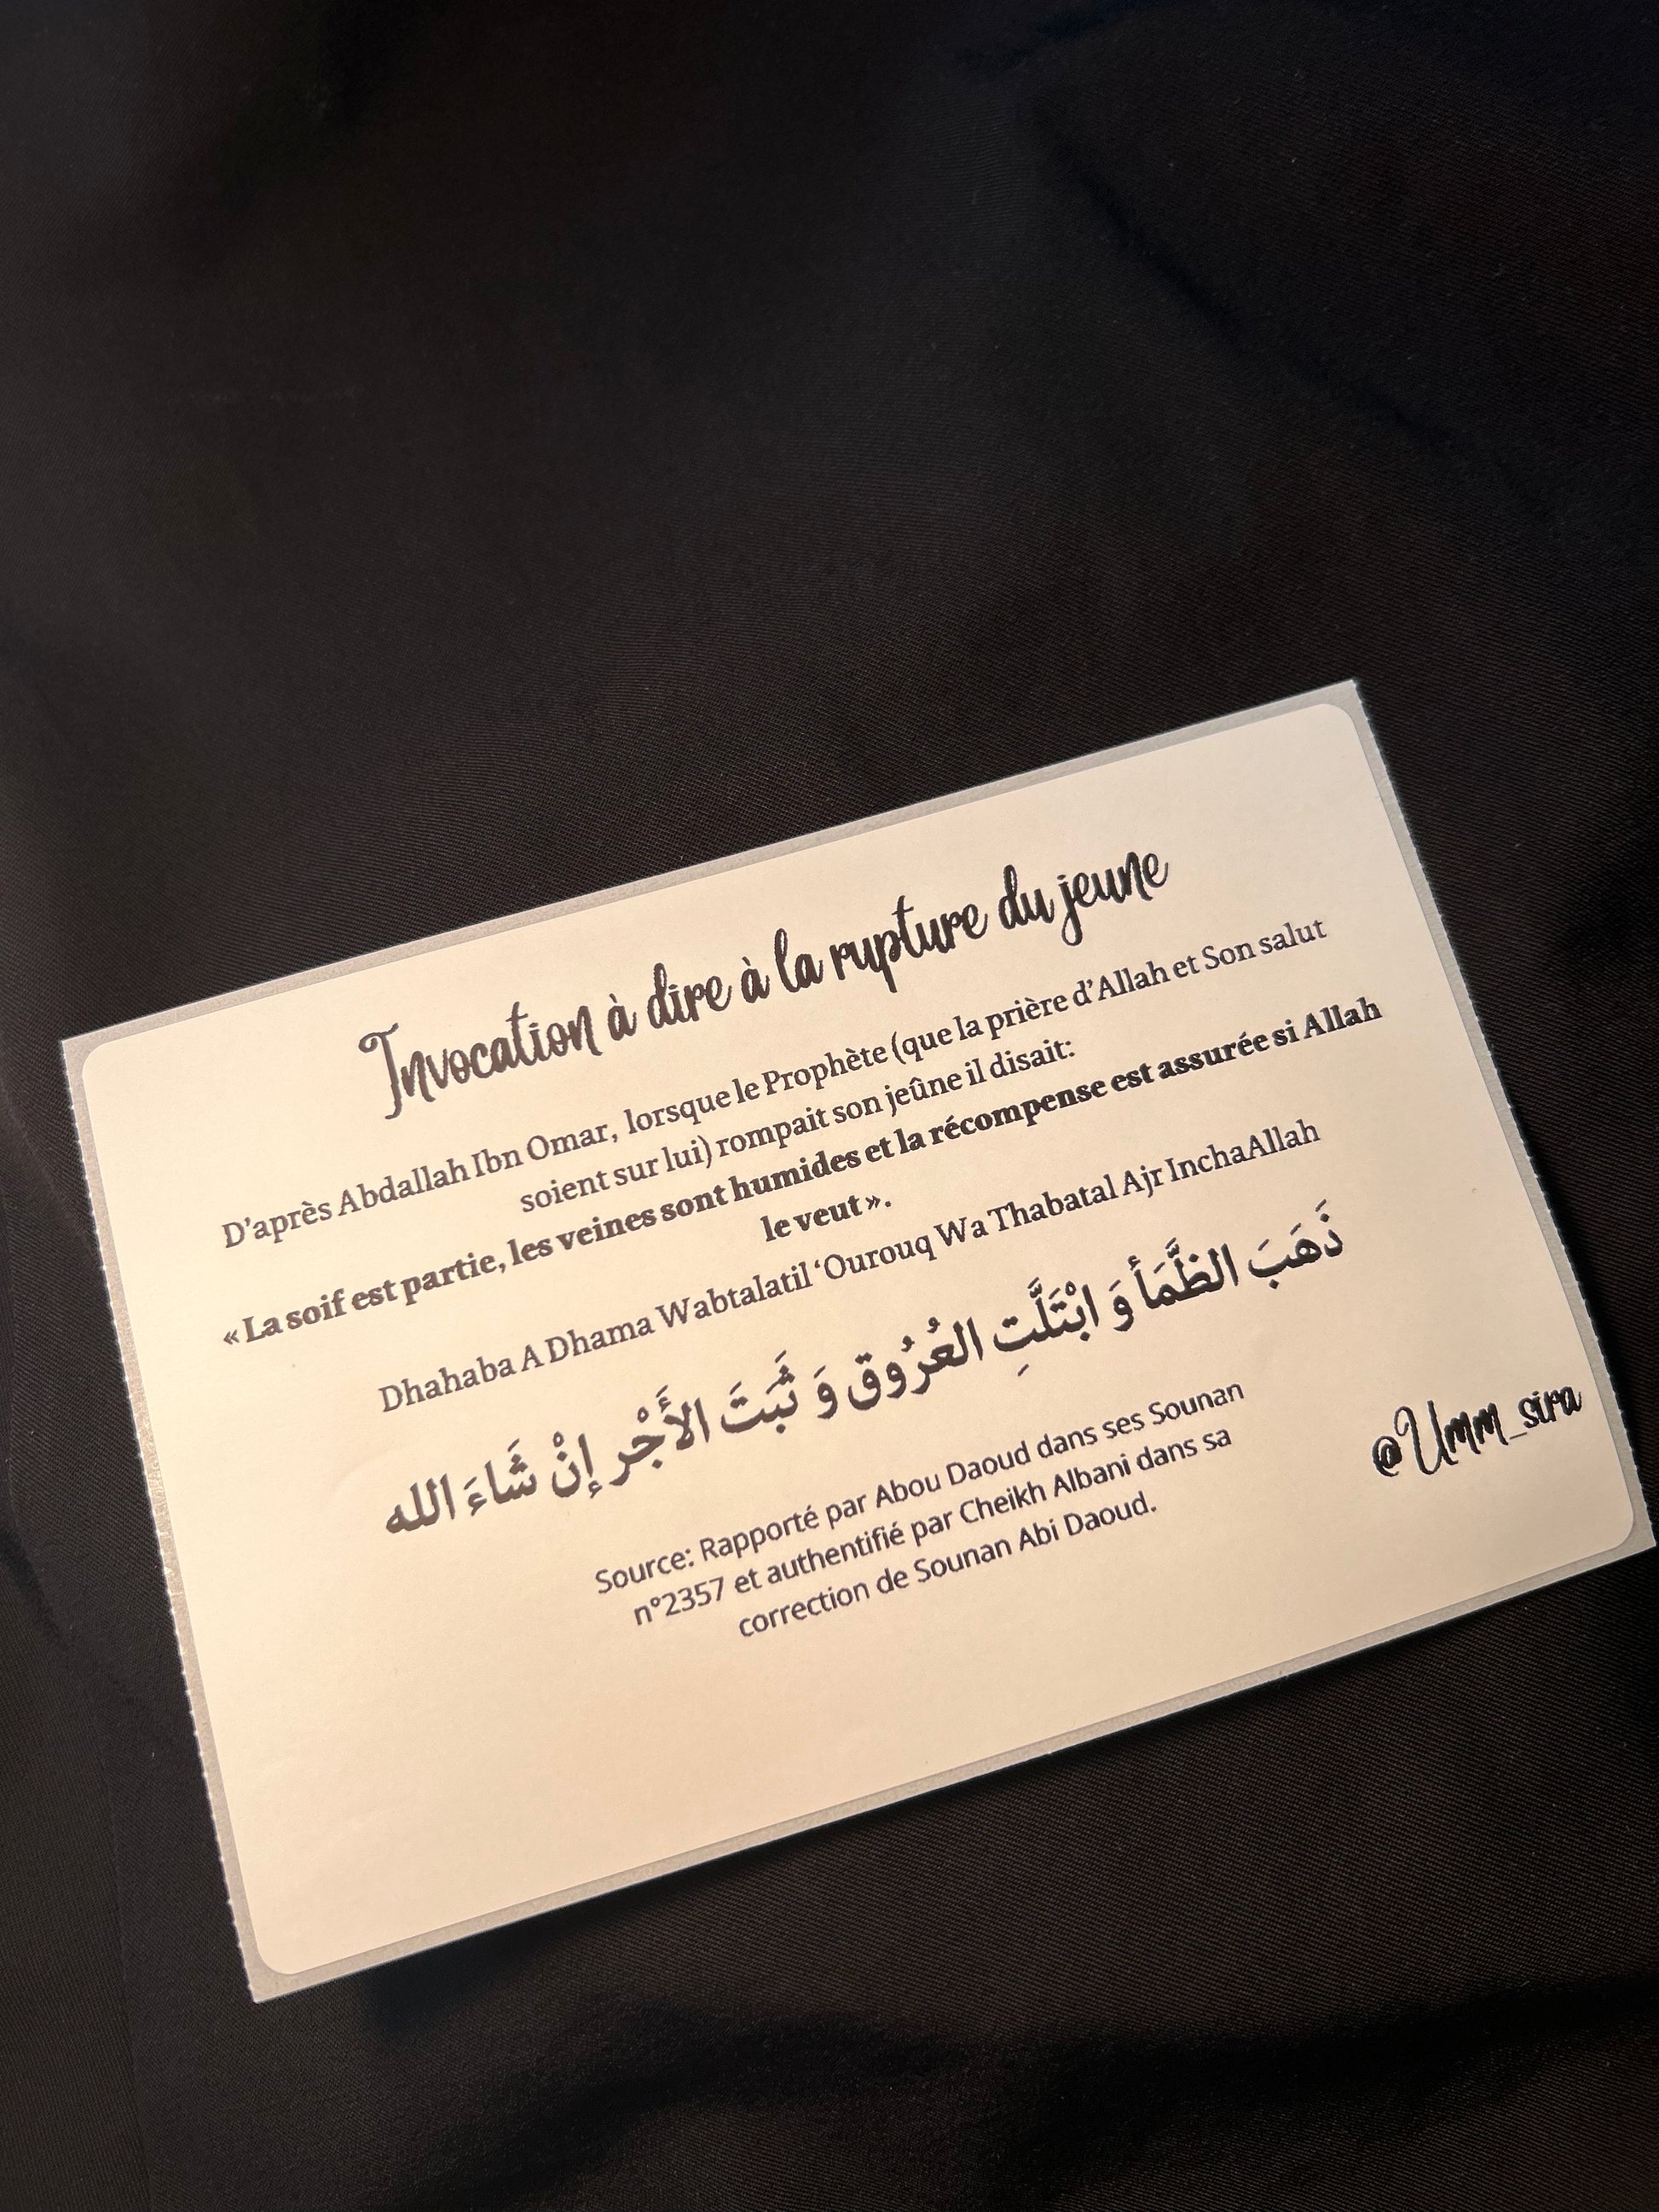 Invocation à dire à la rupture du jeune
D'après Abdallah Ibn Omar, lorsque le Prophète (que la prière d'Allah et Son salut
soient sur lui) rompait son jeûne il disait:
« La soif est partie, les veines sont humides et la récompense est assurée si Allah
le veut ».
Dhahaba A Dhama Wabtalatil ‘Ourouq Wa Thabatal Ajr InchaAllah
ذَهَبَ الظَّمَأُ وَ ابْتَلَّتِ العُرُوق وَ ثَبَتَ الأَجْر إنْ شَاءَ الله
Source: Rapporté par Abou Daoud dans ses Sounan
n°2357 et authentifié par Cheikh Albani dans sa
correction de Sounan Abi Daoud.
@Umm_sira